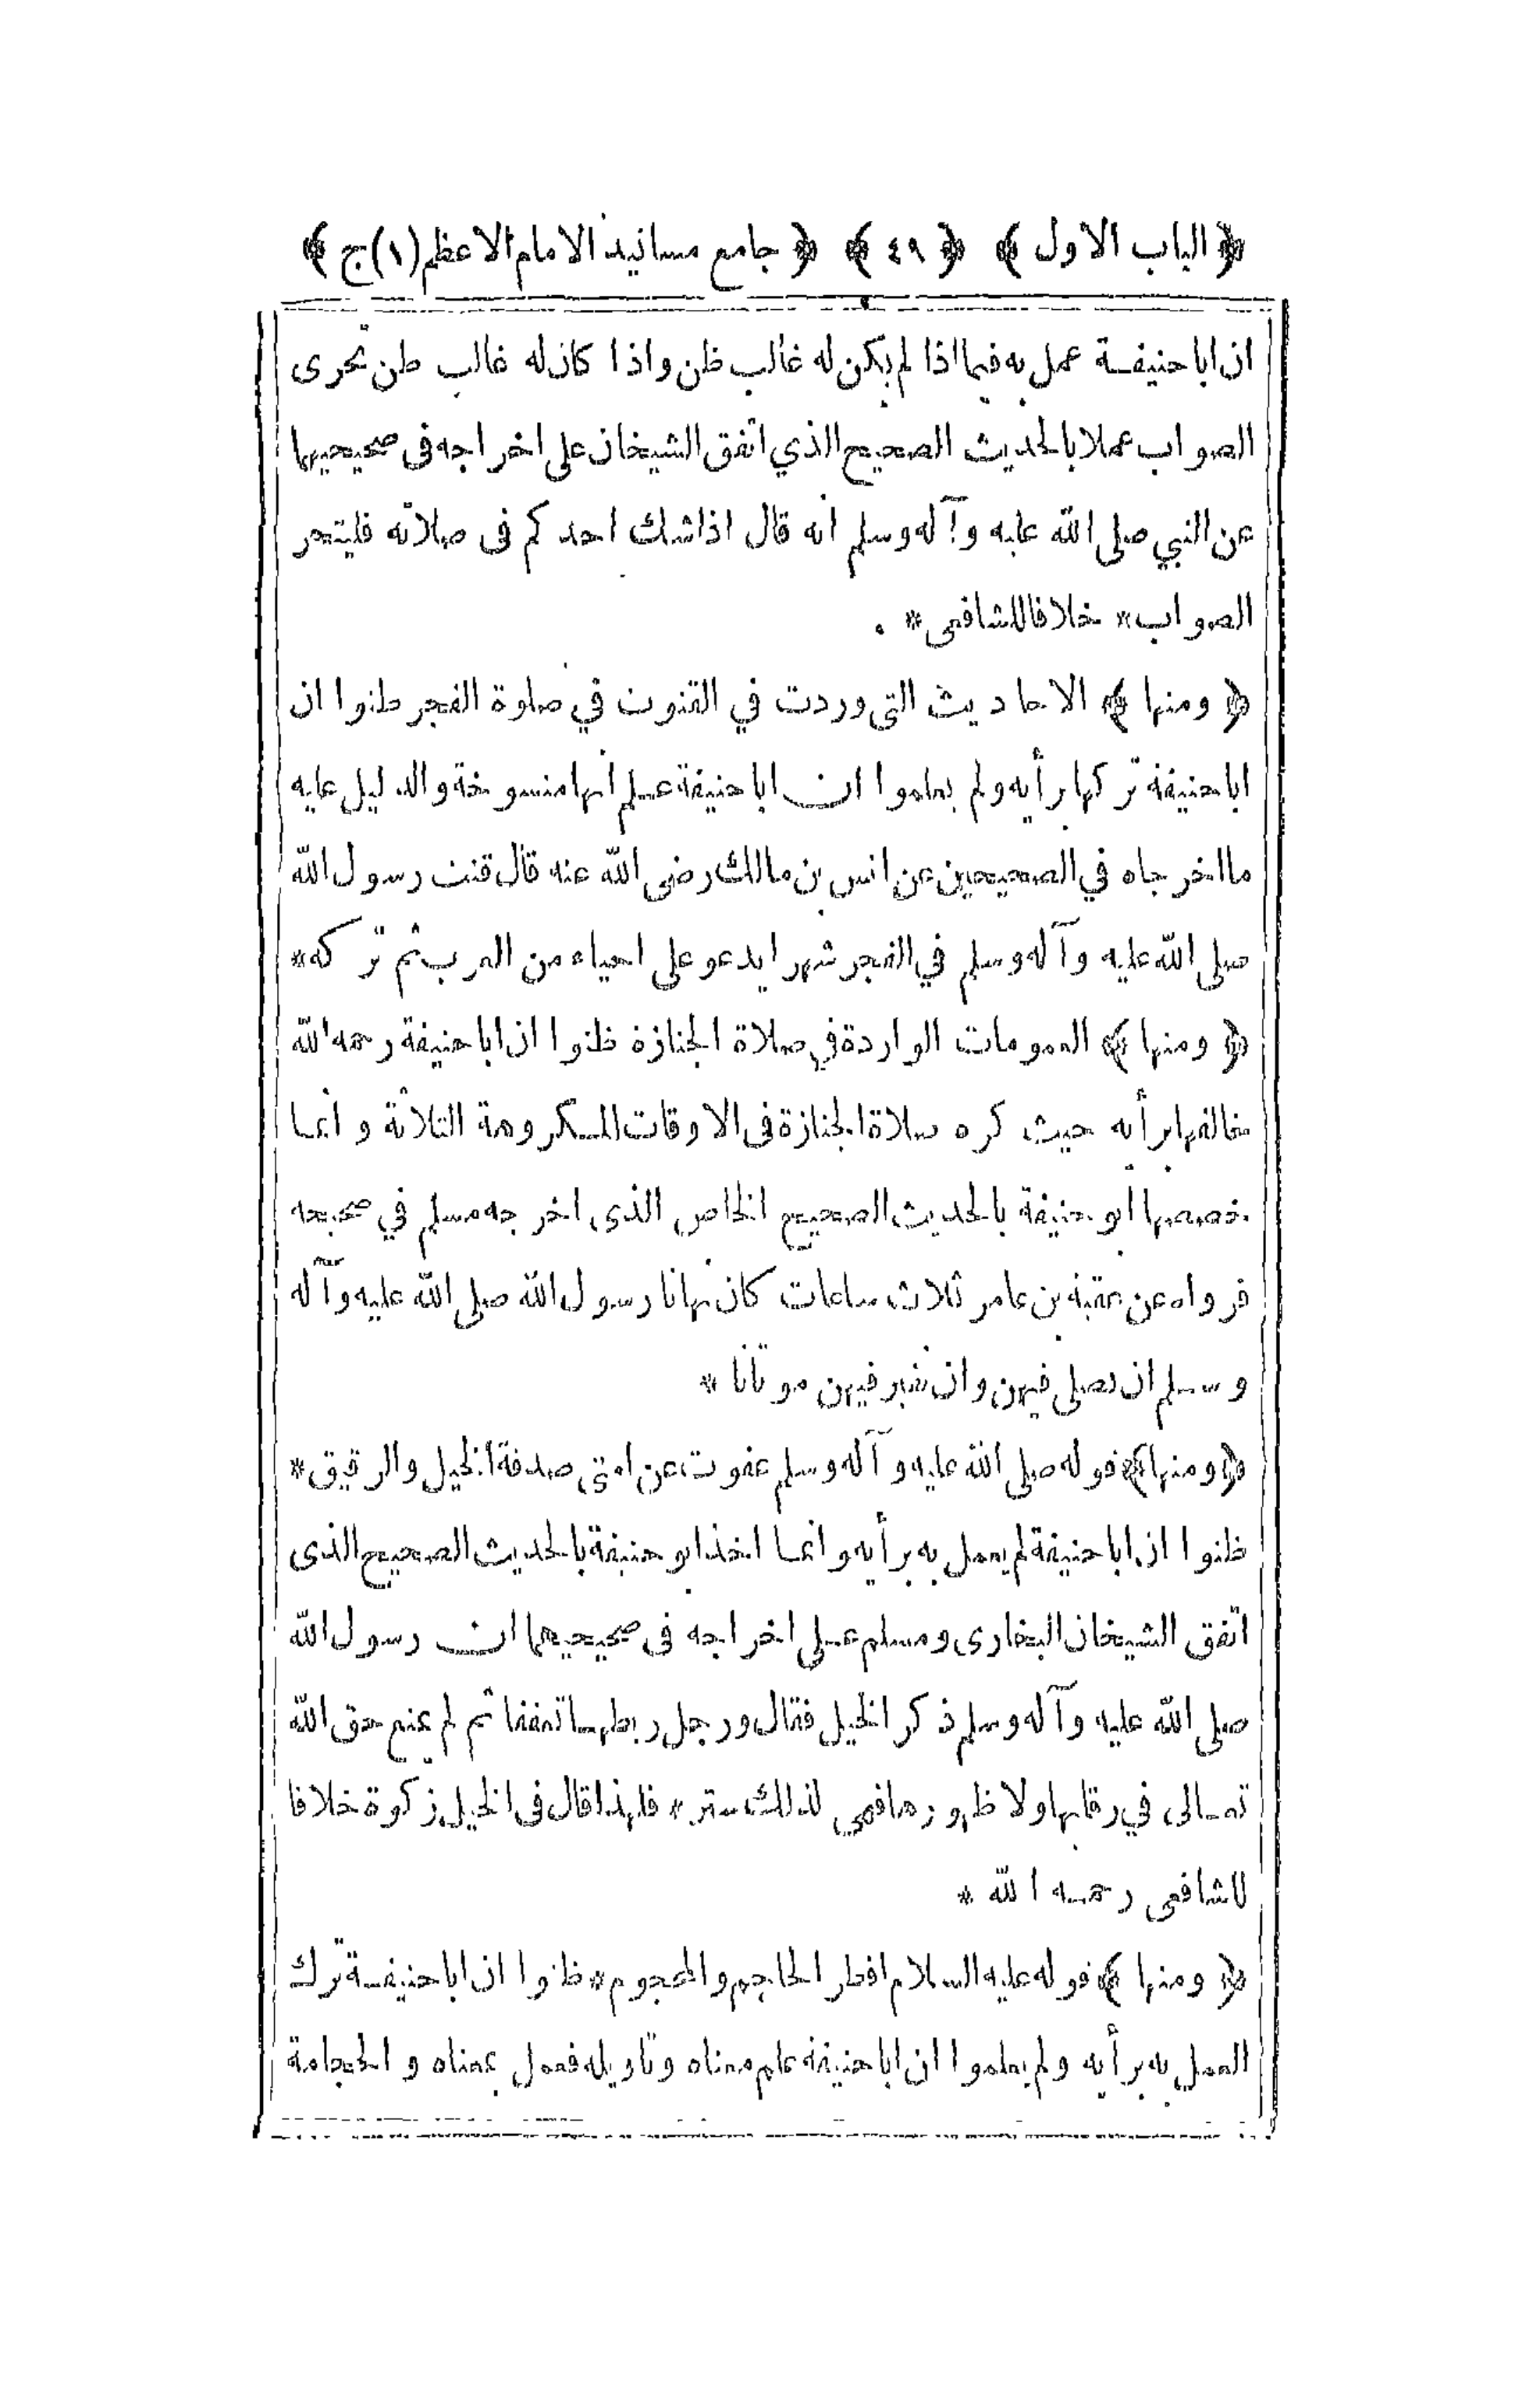 ﴿ الباب الاول ﴾ ﴿ ٤٩ ﴾ ﴿ جامع مسانيد الامام الاعظم (١) ج ﴾
ان ابا حنيفة عمل به فيما اذا لم يكن له غالب ظن واذا كان له غالب ظن تحرى
الصواب عملا بالحديث الصحيح الذي اتفق الشيخان على اخراجه فى صحيحيهما
عن النبي صلى الله عليه وآله وسلم انه قال اذا شك احدكم فى صلاته فليتحر
الصواب * خلافا للشافعى *
﴿ ومنها ﴾ الاحاديث التى وردت في القنوت في صلوة الفجر ظنوا ان
ابا حنيفة تركها برأيه ولم يعلموا ان ابا حنيفة علم انها منسوخة والدليل عليه
ما اخرجاه في الصحيحين عن انس بن مالك رضى الله عنه قال قنت رسول الله
صلى الله عليه وآله وسلم في الفجر شهرا يدعو على احياء من العرب ثم تركه *
﴿ ومنها ﴾ العمومات الواردة في صلاة الجنازة ظنوا ان ابا حنيفة رحمه الله
خالفها برأيه حيث كره صلاة الجنازة فى الاوقات المكروهة الثلاثة وانما
خصصها ابو حنيفة بالحديث الصحيح الخاص الذى اخرجه مسلم في صحيحه
فرواه عن عقبة بن عامر ثلاث ساعات كان نهانا رسول الله صلى الله عليه وآله
وسلم ان نصلى فيهن وان نقبر فيهن موتانا *
﴿ ومنها ﴾ قوله صلى الله عليه وآله وسلم عفوت عن امتى صدقة الخيل والرقيق *
ظنوا ان ابا حنيفة لم يعمل به برأيه وانما اخذ ابو حنيفة بالحديث الصحيح الذى
اتفق الشيخان البخارى ومسلم على اخراجه فى صحيحيهما ان رسول الله
صلى الله عليه وآله وسلم ذكر الخيل فقال ورجل ربطها تعففا ثم لم يمنع حق الله
تعالى في رقابها ولا ظهورها فهى لذلك ستر * فلهذا قال فى الخيل زكوة خلافا
للشافعى رحمه الله *
﴿ ومنها ﴾ قوله عليه السلام افطر الحاجم والمحجوم * ظنوا ان ابا حنيفة ترك
العمل به برأيه ولم يعلموا ان ابا حنيفة علم معناه وتاويله فعمل بمعناه والحجامة